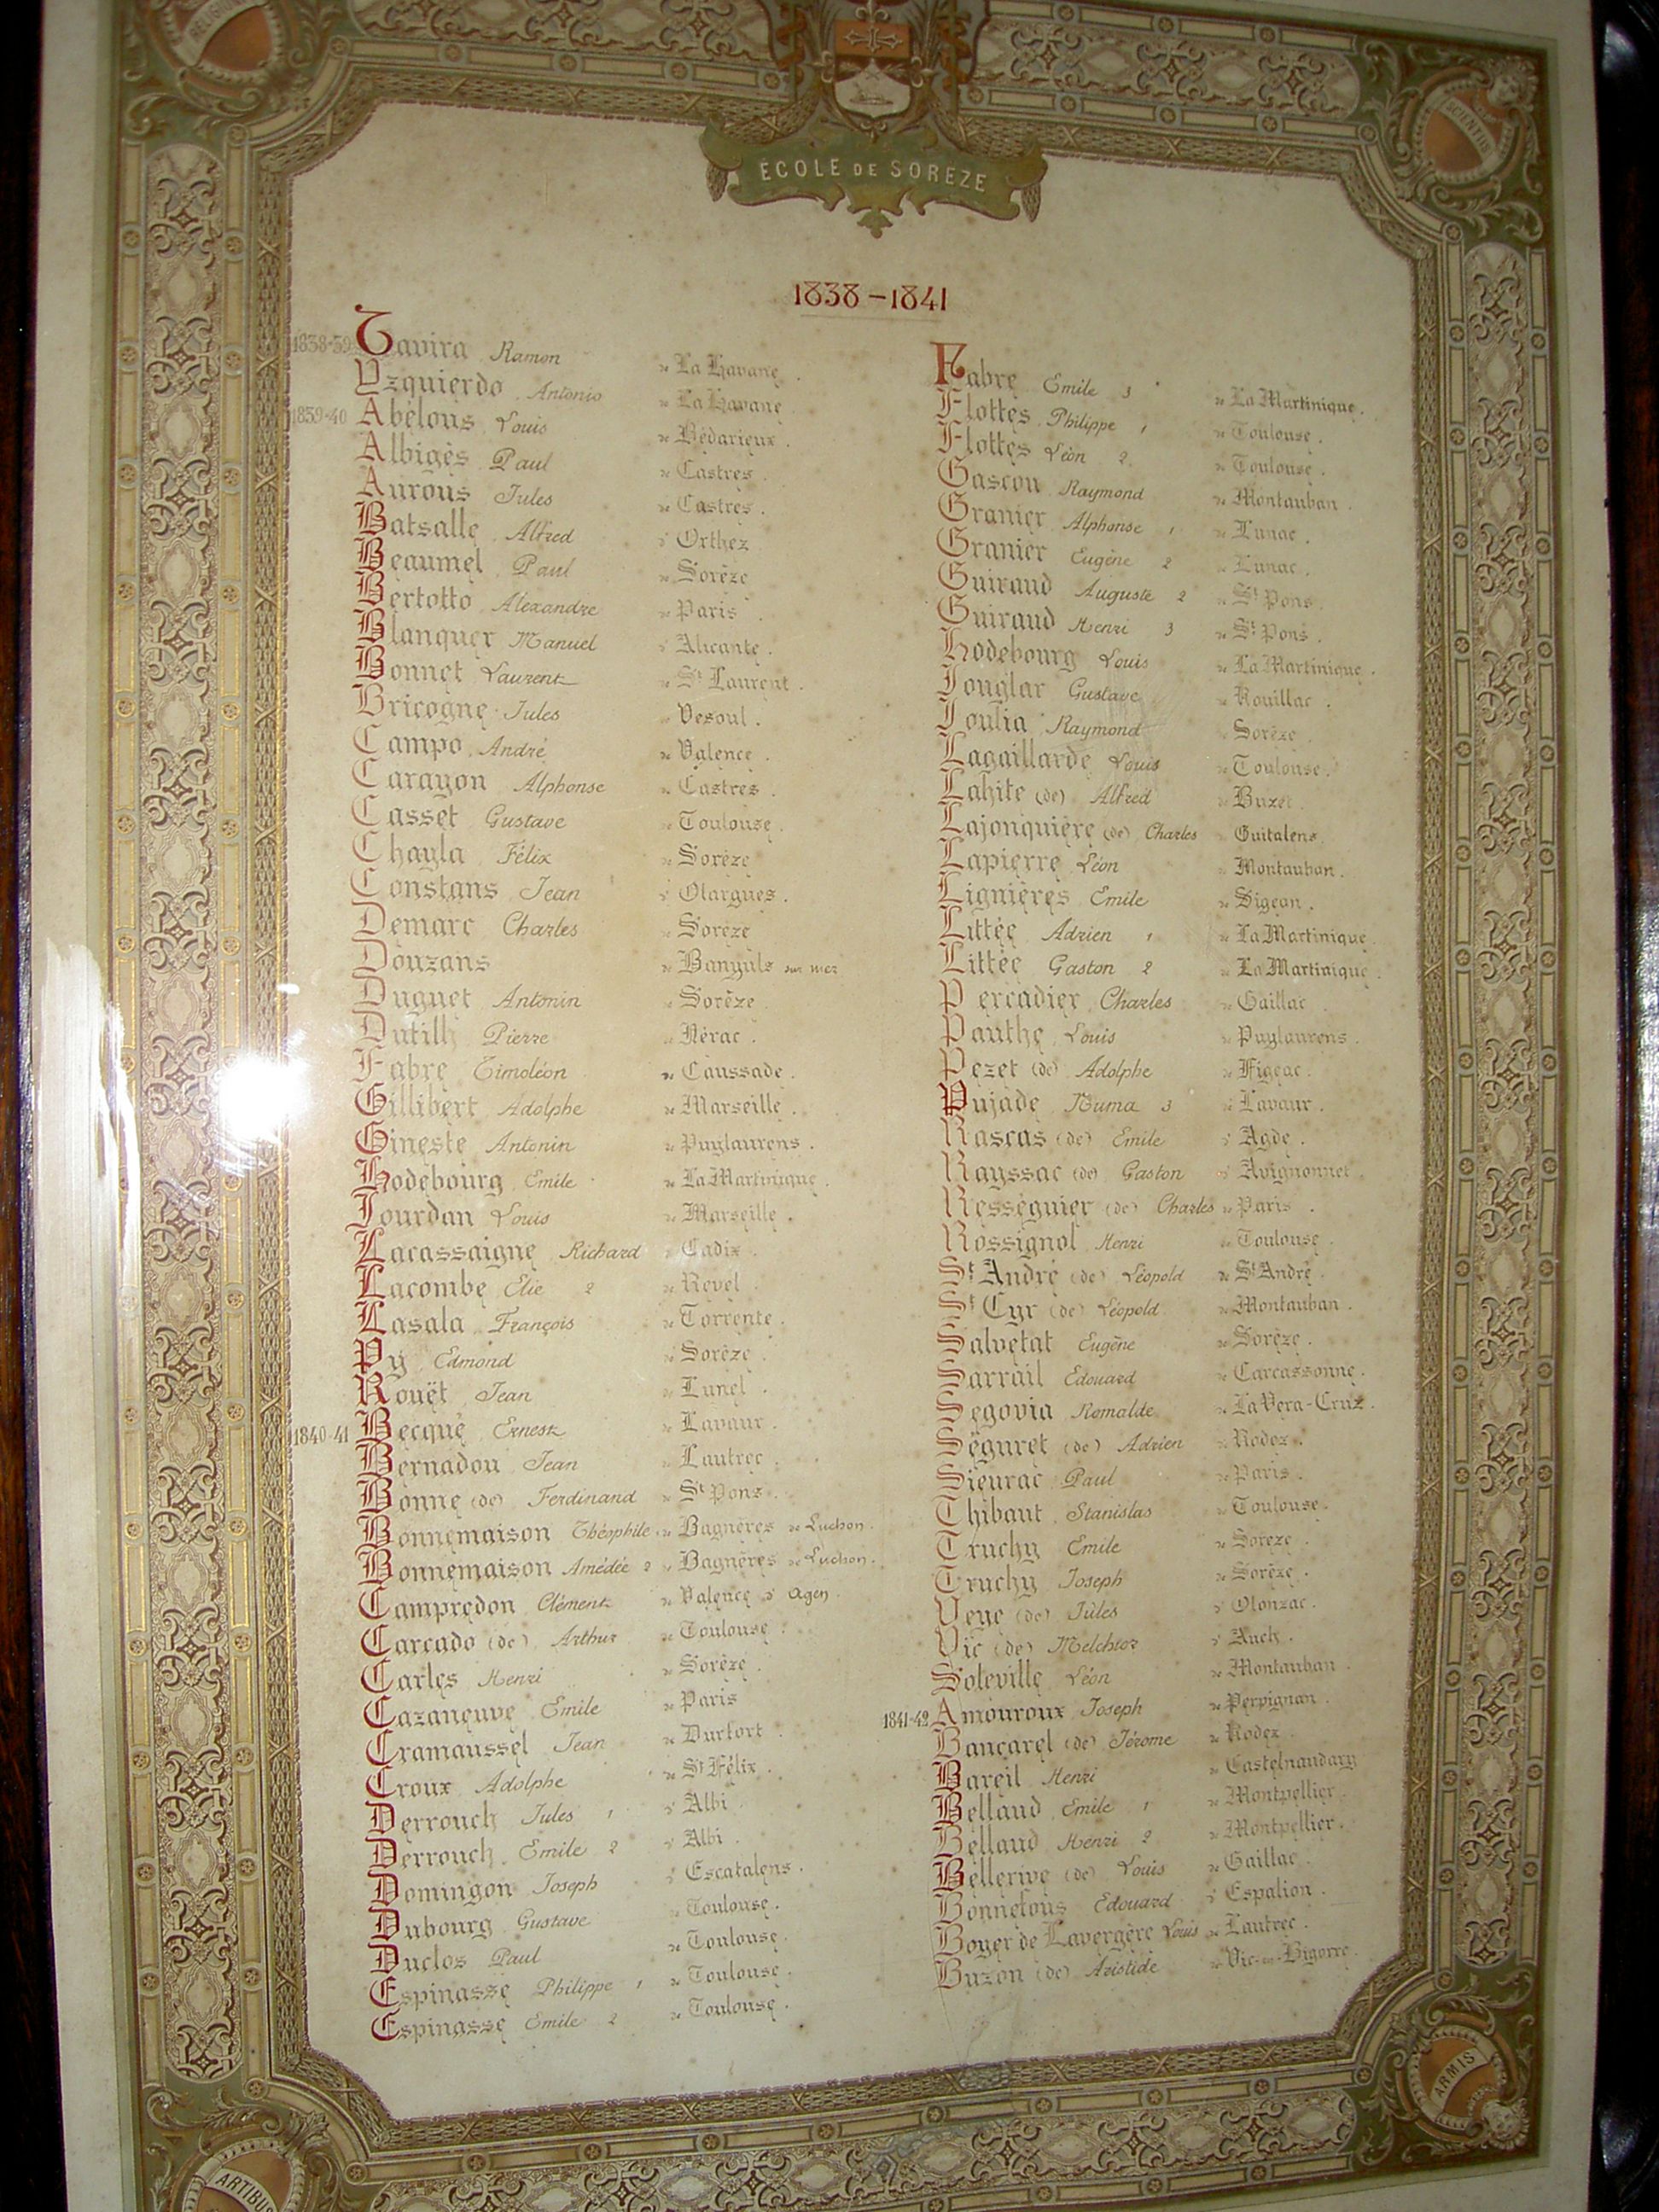 RELIGION
SCIENTIIS
ÉCOLE DE SORÈZE
1838-1841
1838-39 Tavira Ramon de La Havane.
Yzquierdo Antonio de La Havane.
1839-40 Abélous Louis de Bédarieux.
Albigès Paul de Castres.
Aurous Jules de Castres.
Batsalle Alfred d' Orthez
Beaumel Paul de Sorèze
Bertotto Alexandre de Paris
Blanquer Manuel d' Alicante.
Bonnet Laurent de St Laurent.
Bricogne Jules de Vesoul.
Campo André de Valence.
Carayon Alphonse de Castres.
Casset Gustave de Toulouse.
Chayla Félix de Sorèze
Constans Jean d' Olargues.
Demarc Charles de Sorèze
Douzans de Banyuls sur mer
Duguet Antonin de Sorèze
Dutilh Pierre de Nérac.
Fabre Timoléon de Caussade.
Gillibert Adolphe de Marseille.
Gineste Antonin de Puylaurens.
Hodebourg Emile de La Martinique.
Jourdan Louis de Marseille.
Lacassaigne Richard de Cadix.
Lacombe Elie 2 de Revel.
Lasala François de Torrente.
Py Edmond de Sorèze.
Rouët Jean de Lunel.
1840-41 Becque Ernest de Lavaur.
Bernadou Jean de Lautrec.
Bonne (de) Ferdinand de St Pons.
Bonnemaison Théophile de Bagnères de Luchon.
Bonnemaison Amédée 2 de Bagnères de Luchon.
Campredon Clément de Valence d' Agen.
Carcado (de) Arthur de Toulouse.
Carles Henri de Sorèze.
Cazaneuve Emile de Paris
Cramaussel Jean de Durfort.
Croux Adolphe de St Félix.
Derrouch Jules 1 d' Albi
Derrouch Emile 2 d' Albi.
Domingon Joseph d' Escatalens.
Dubourg Gustave de Toulouse.
Duclos Paul de Toulouse.
Espinasse Philippe 1 de Toulouse.
Espinasse Emile 2 de Toulouse.
Fabre Emile 3 de La Martinique.
Flottes Philippe 1 de Toulouse.
Flottes Léon 2 de Toulouse.
Gascou Raymond de Montauban.
Granier Alphonse 1 de Lunac.
Granier Eugène 2 de Lunac.
Guiraud Auguste 2 de St Pons.
Guiraud Henri 3 de St Pons.
Hodebourg Louis de La Martinique.
Jouglar Gustave de Rouillac.
Joulia Raymond de Sorèze.
Lagaillarde Louis de Toulouse.
Lahite (de) Alfred de Buzet.
Lajonquière (de) Charles de Guitalens
Lapierre Léon de Montauban.
Lignières Emile de Sigean.
Littée Adrien 1 de La Martinique.
Littée Gaston 2 de La Martinique.
Percadier Charles de Gaillac
Pauthe Louis de Puylaurens.
Pezet (de) Adolphe de Figeac.
Pujade Numa 3 de Lavaur.
Rascas (de) Emile d' Agde.
Rayssac (de) Gaston d' Avignonnet.
Rességuier (de) Charles de Paris.
Rossignol Henri de Toulouse.
St André (de) Léopold de St André.
St Cyr (de) Léopold de Montauban.
Salvetat Eugène de Sorèze.
Sarrail Edouard de Carcassonne.
Segovia Romalde de La Vera-Cruz.
Séguret (de) Adrien de Rodez.
Sieurac Paul de Paris.
Thibaut Stanislas de Toulouse.
Truchy Emile de Sorèze.
Truchy Joseph de Sorèze.
Veye (de) Jules d' Olonzac.
Vic (de) Melchior d' Auch.
Soleville Léon de Montauban.
1841-42 Amouroux Joseph de Perpignan.
Bancarel (de) Jérome de Rodez
Bareil Henri de Castelnaudary
Bellaud Emile 1 de Montpellier.
Bellaud Henri 2 de Montpellier.
Bellerive (de) Louis de Gaillac.
Bonnefous Edouard d' Espalion.
Boyer de Lavergère Louis de Lautrec.
Buzon (de) Aristide de Vic-en-Bigorre.
ARTIBUS
ARMIS